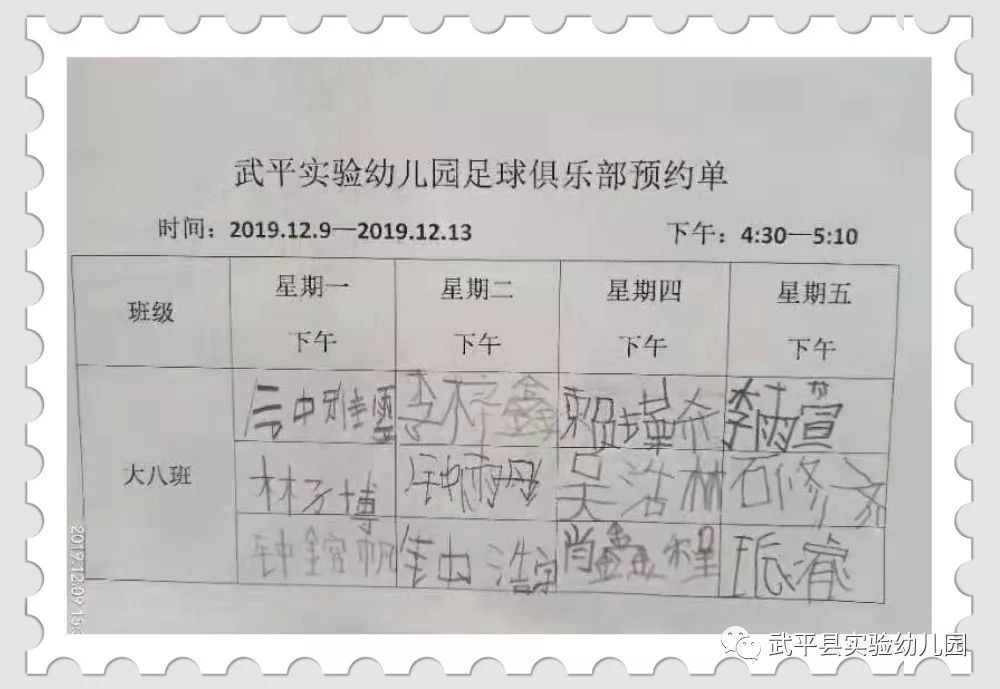 武平实验幼儿园足球俱乐部预约单
时间：2019.12.9—2019.12.13 下午：4:30—5:10
班级 星期一 下午 星期二 下午 星期四 下午 星期五 下午
大八班
钟雅雯 李梓鑫 赖瑾希 李雨萱
林子博 钟雨彤 吴浩林 石修齐
钟镕帆 钟浩宇 肖鑫程 睿
2019.12.09 15:
武平县实验幼儿园